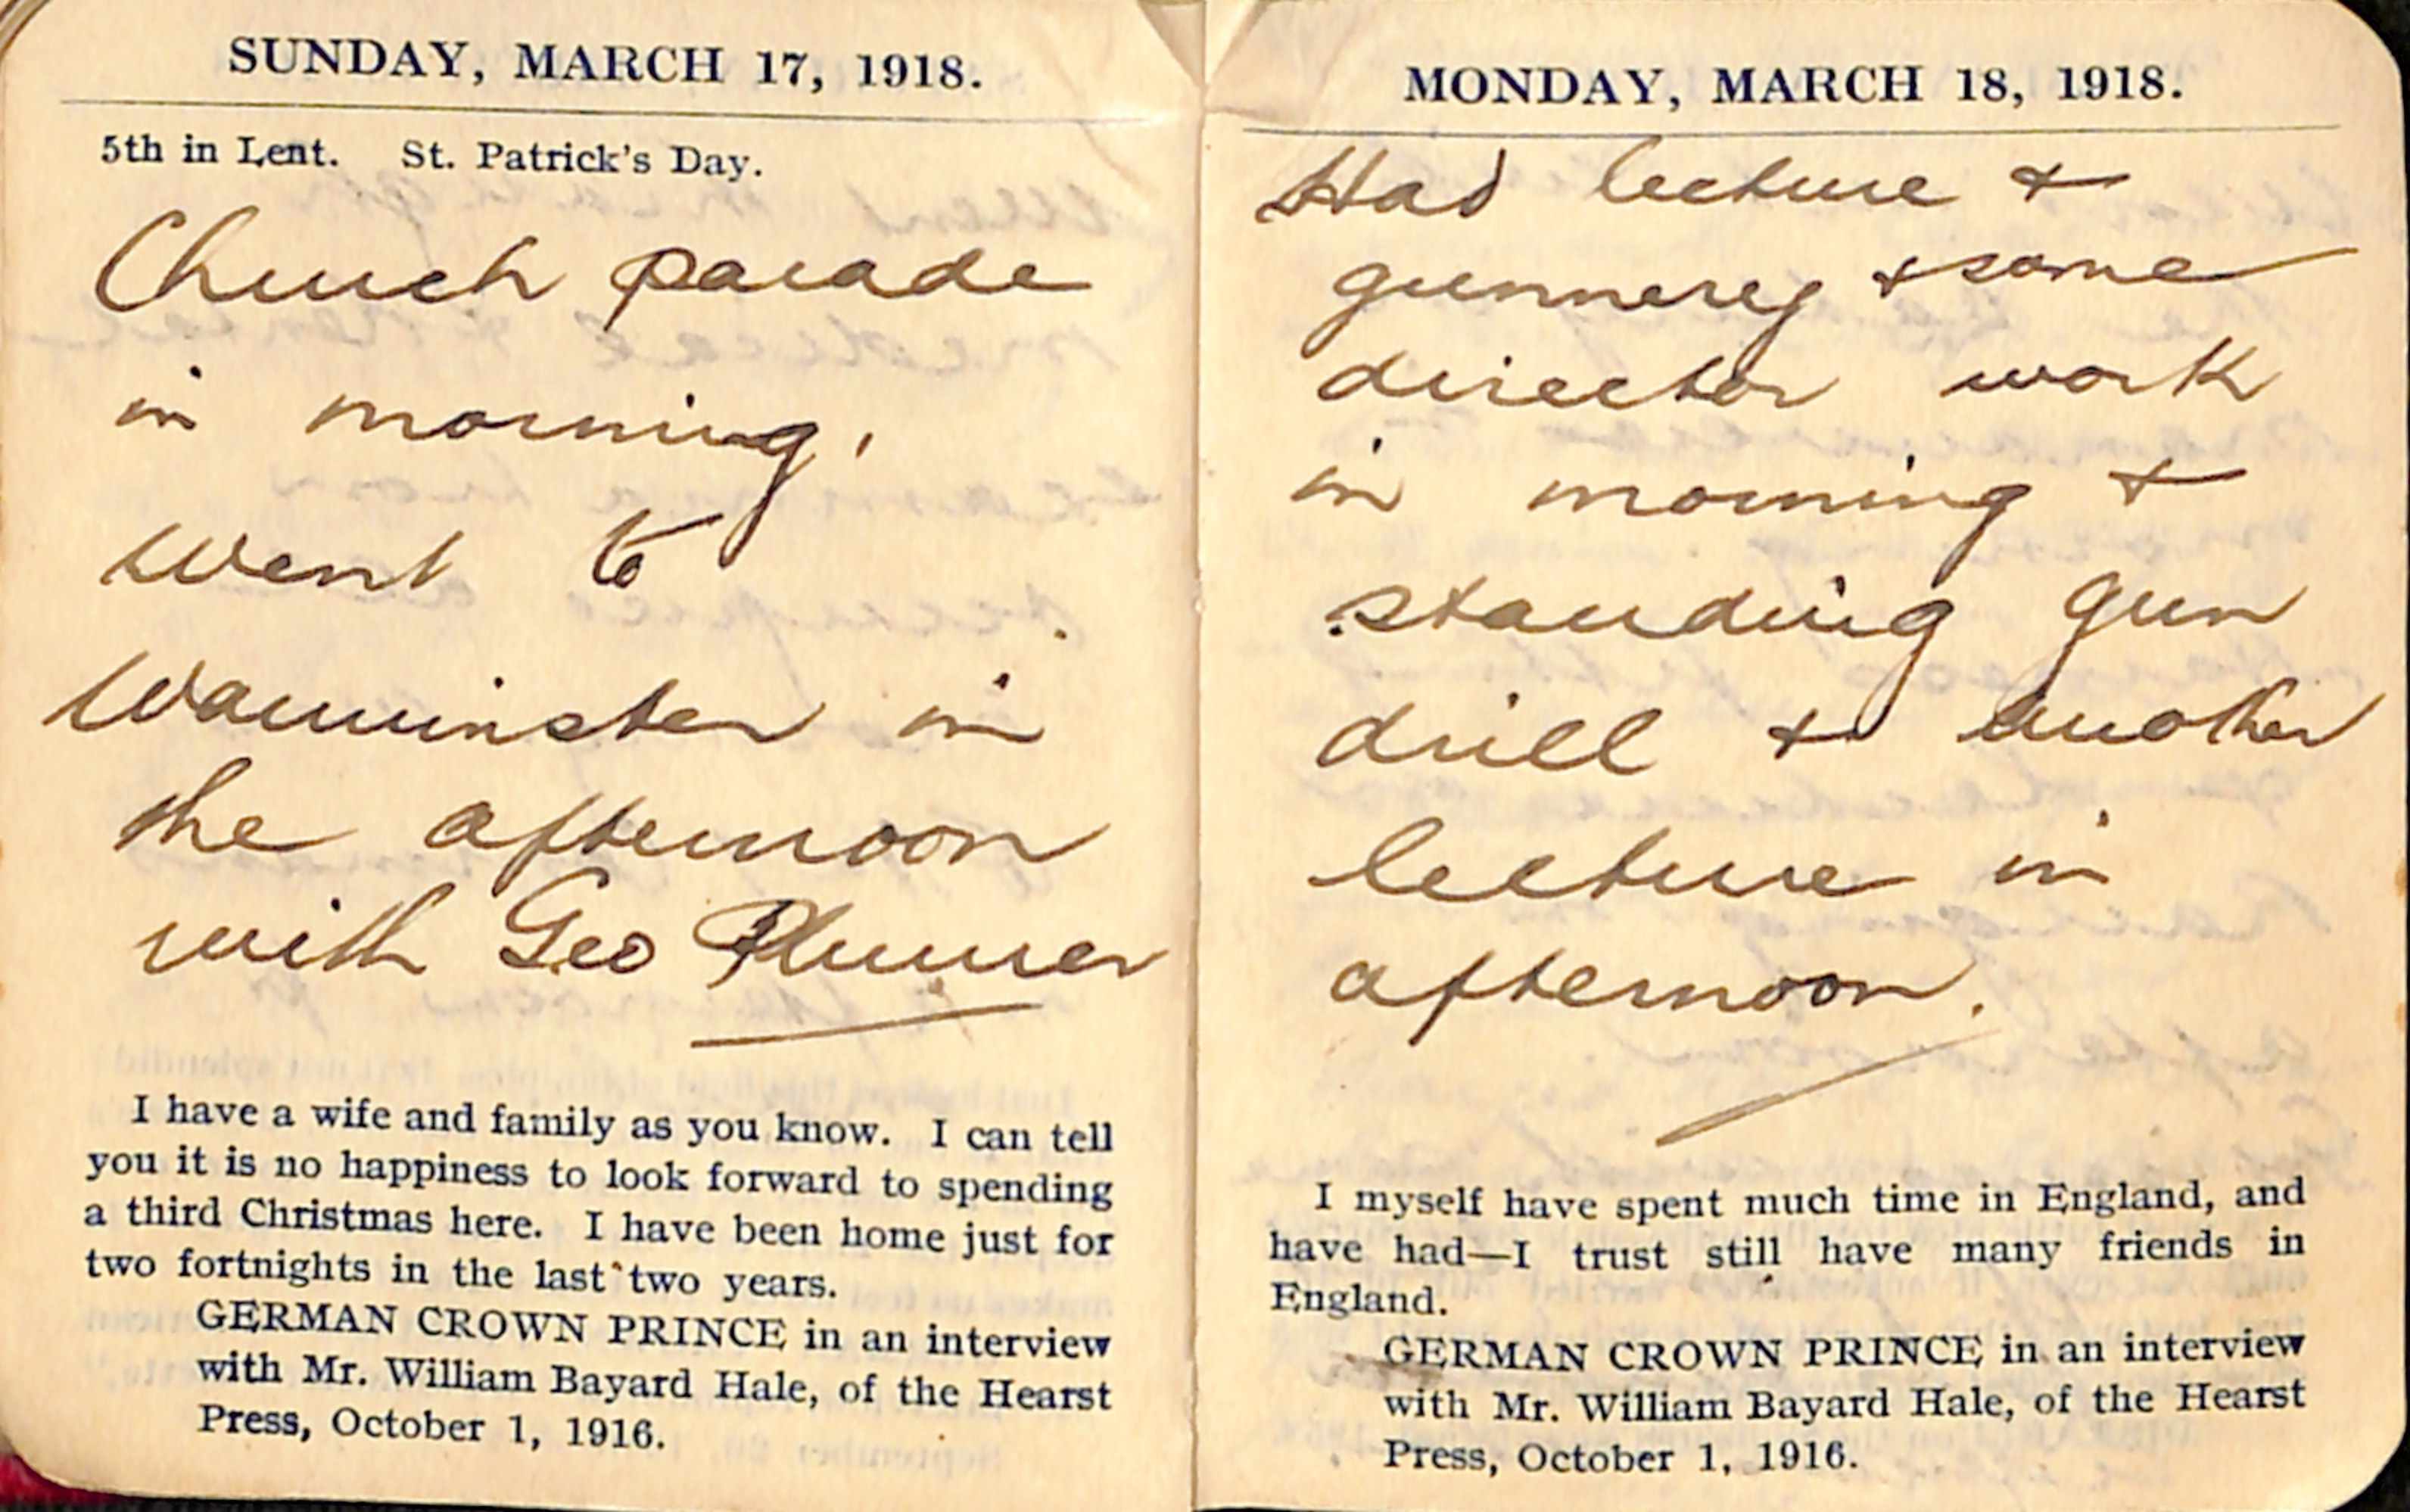 SUNDAY, MARCH 17, 1918.
5th in Lent. St. Patrick's Day.
Church parade
in morning,
Went to
Warminster in
the afternoon
with Geo Plummer
I have a wife and family as you know. I can tell
you it is no happiness to look forward to spending
a third Christmas here. I have been home just for
two fortnights in the last two years.
GERMAN CROWN PRINCE in an interview
with Mr. William Bayard Hale, of the Hearst
Press, October 1, 1916.
MONDAY, MARCH 18, 1918.
Had lecture +
gunnery + some
director work
in morning +
standing gun
drill + another
lecture in
afternoon.
I myself have spent much time in England, and
have had—I trust still have many friends in
England.
GERMAN CROWN PRINCE in an interview
with Mr. William Bayard Hale, of the Hearst
Press, October 1, 1916.